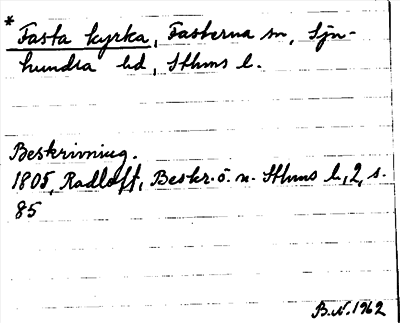 * Fasta kyrka, Fasterna sn, Sju-
hundra hd, Sthms l.
Beskrivning.
1805, Radloff, Beskr. ö. n. Sthms l., 2, s.
85
B.N. 1962